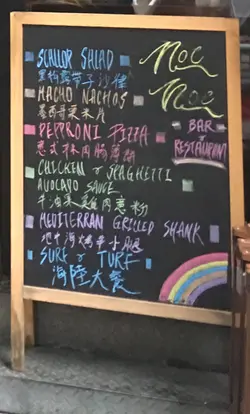 SCALLOP SALAD
黑松露帶子沙律
NACHO NACHOS
墨西哥粟米片
PEPPRONI PIZZA
意式林肉腸薄餅
CHICKEN & SPAGHETTI
AVOCADO SAUCE
牛油果雞肉意粉
MEDITERRAN GRILLED SHANK
地中海烤羊小腿
SURF & TURF
海陸大餐
Moe
Moe
BAR
&
RESTAURANT